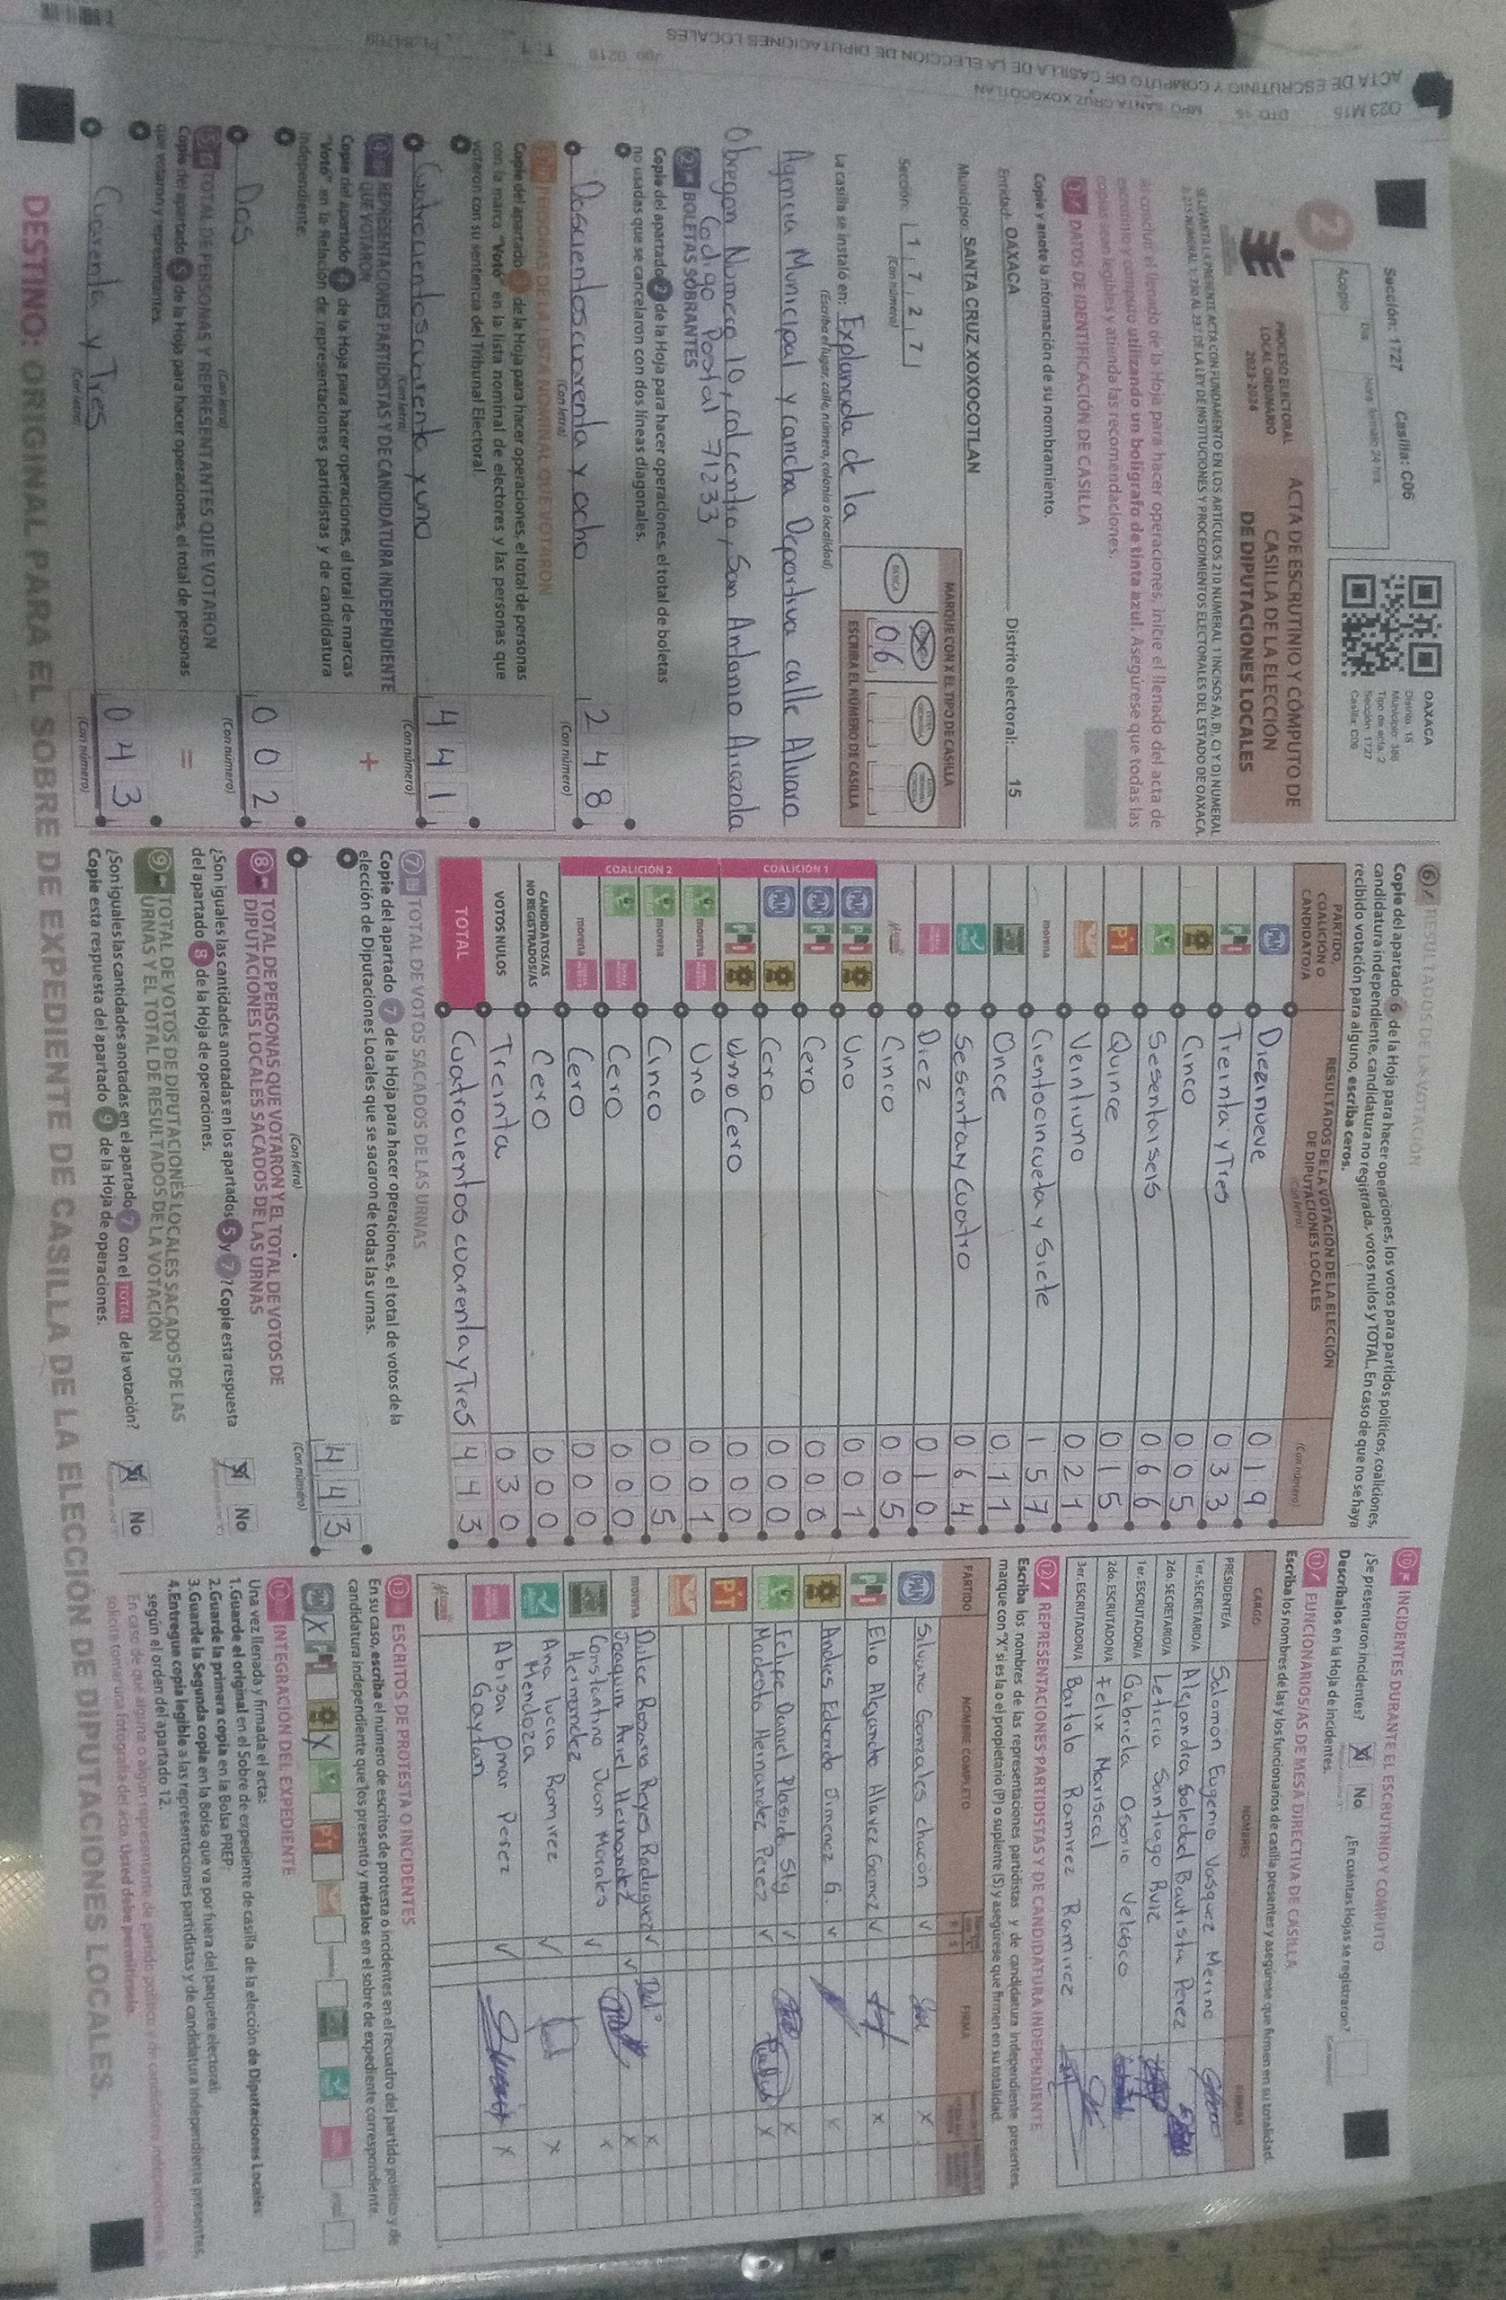 Sección: 1727 Casilla: C06
Acopio
OAXACA
Distrito: 15
Municipio: 386
Tipo de acta: 2
Sección: 1727
Casilla: C06
2
PROCESO ELECTORAL
LOCAL ORDINARIO
2023-2024
ACTA DE ESCRUTINIO Y CÓMPUTO DE
CASILLA DE LA ELECCIÓN
DE DIPUTACIONES LOCALES
SE LEVANTA LA PRESENTE ACTA CON FUNDAMENTO EN LOS ARTÍCULOS 210 NUMERAL 1 INCISOS A), B), C) Y D) NUMERAL
2; 215 NUMERAL 1; 230 AL 237 DE LA LEY DE INSTITUCIONES Y PROCEDIMIENTOS ELECTORALES DEL ESTADO DE OAXACA.
Al concluir el llenado de la Hoja para hacer operaciones, inicie el llenado del acta de
escrutinio y cómputo utilizando un bolígrafo de tinta azul. Asegúrese que todas las
copias sean legibles y atienda las recomendaciones.
1 DATOS DE IDENTIFICACIÓN DE CASILLA
Copie y anote la información de su nombramiento.
Entidad: OAXACA Distrito electoral: 15
Municipio: SANTA CRUZ XOXOCOTLAN
Sección: 1 7 2 7
(Con número)
MARQUE CON X EL TIPO DE CASILLA
BÁSICA
0 6
ESCRIBA EL NÚMERO DE CASILLA
La casilla se instaló en: Explanada de la
(Escriba el lugar, calle, número, colonia o localidad)
Agencia Municipal y cancha Deportiva calle Alvaro
Obregon Numero 10, col centro, San Antonio Arrazola
Codigo Postal 71233
2 BOLETAS SOBRANTES
Copie del apartado 2 de la Hoja para hacer operaciones, el total de boletas
no usadas que se cancelaron con dos líneas diagonales.
Doscientos cuarenta y ocho 2 4 8
(Con letra) (Con número)
3 PERSONAS DE LA LISTA NOMINAL QUE VOTARON
Copie del apartado 3 de la Hoja para hacer operaciones, el total de personas
con la marca "Votó" en la lista nominal de electores y las personas que
votaron con su sentencia del Tribunal Electoral.
Cuatrocientos cuarenta y uno 4 4 1
(Con letra) (Con número)
4 REPRESENTACIONES PARTIDISTAS Y DE CANDIDATURA INDEPENDIENTE
QUE VOTARON
+
Copie del apartado 4 de la Hoja para hacer operaciones, el total de marcas
"Votó" en la Relación de representaciones partidistas y de candidatura
independiente.
Dos 0 0 2
(Con letra) (Con número)
5 TOTAL DE PERSONAS Y REPRESENTANTES QUE VOTARON
=
Copie del apartado 5 de la Hoja para hacer operaciones, el total de personas
que votaron y representantes.
Cuarenta y Tres 0 4 3
(Con letra) (Con número)
6 RESULTADOS DE LA VOTACIÓN
Copie del apartado 6 de la Hoja para hacer operaciones, los votos para partidos políticos, coaliciones,
candidatura independiente, candidatura no registrada, votos nulos y TOTAL. En caso de que no se haya
recibido votación para alguno, escriba ceros.
PARTIDO,
COALICIÓN O
CANDIDATO/A
RESULTADOS DE LA VOTACIÓN DE LA ELECCIÓN
DE DIPUTACIONES LOCALES
(Con letra) (Con número)
PAN Diecinueve 0 1 9
PRI Treinta y Tres 0 3 3
Cinco 0 0 5
Sesentaiseis 0 6 6
PT Quince 0 1 5
Veintiuno 0 2 1
morena Cientocincueta y Siete 1 5 7
Once 0 1 1
Sesentay cuatro 0 6 4
Diez 0 1 0
Cinco 0 0 5
COALICIÓN 1
PAN PRI Uno 0 0 1
PAN PRI Cero 0 0 0
PAN Cero 0 0 0
PRI Uno Cero 0 0 0
COALICIÓN 2
morena Uno 0 0 1
morena Cinco 0 0 5
Cero 0 0 0
morena Cero 0 0 0
CANDIDATOS/AS
NO REGISTRADOS/AS Cero 0 0 0
VOTOS NULOS Treinta 0 3 0
TOTAL Cuatrocientos cuarenta y Tres 4 4 3
7 TOTAL DE VOTOS SACADOS DE LAS URNAS
Copie del apartado 7 de la Hoja para hacer operaciones, el total de votos de la
elección de Diputaciones Locales que se sacaron de todas las urnas.
4 4 3
(Con letra) (Con número)
8 TOTAL DE PERSONAS QUE VOTARON Y EL TOTAL DE VOTOS DE
DIPUTACIONES LOCALES SACADOS DE LAS URNAS
¿Son iguales las cantidades anotadas en los apartados 5 y 7? Copie esta respuesta
del apartado 8 de la Hoja de operaciones.
Sí No
9 TOTAL DE VOTOS DE DIPUTACIONES LOCALES SACADOS DE LAS
URNAS Y EL TOTAL DE RESULTADOS DE LA VOTACIÓN
¿Son iguales las cantidades anotadas en el apartado 7 con el TOTAL de la votación?
Copie esta respuesta del apartado 9 de la Hoja de operaciones.
Sí No
10 INCIDENTES DURANTE EL ESCRUTINIO Y CÓMPUTO
¿Se presentaron incidentes? Sí No ¿En cuántas Hojas se registraron?
Descríbalos en la Hoja de Incidentes.
11 FUNCIONARIOS/AS DE MESA DIRECTIVA DE CASILLA
Escriba los nombres de las y los funcionarios de casilla presentes y asegúrese que firmen en su totalidad.
CARGO NOMBRES FIRMAS
PRESIDENTE/A Salomon Eugenio Vasquez Merino
1er. SECRETARIO/A Alejandra Soledad Bautista Perez
2do. SECRETARIO/A Leticia Santiago Ruiz
1er. ESCRUTADOR/A Gabriela Osorio Velasco
2do. ESCRUTADOR/A Felix Mariscal
3er. ESCRUTADOR/A Bartolo Ramirez Ramirez
12 REPRESENTACIONES PARTIDISTAS Y DE CANDIDATURA INDEPENDIENTE
Escriba los nombres de las representaciones partidistas y de candidatura independiente presentes,
marque con "X" si es la o el propietario (P) o suplente (S) y asegúrese que firmen en su totalidad.
PARTIDO NOMBRE COMPLETO FIRMA
PAN Silvano Gonzales chacón
PRI Elio Alejandro Alavez Gomez
Andres Eduardo Jimenez G.
Felipe Daniel Plasido Sty
Modesta Hernandez Perez
PT
morena Dulce Rosario Reyes Rodriguez
Joaquin Ariel Hernandez
Constantino Juan Morales
Hernandez
Ana Lucia Ramirez
Mendoza
Abisai Omar Perez
Gaytan
13 ESCRITOS DE PROTESTA O INCIDENTES
En su caso, escriba el número de escritos de protesta o incidentes en el recuadro del partido político y de
candidatura independiente que los presentó y métalos en el sobre de expediente correspondiente.
14 INTEGRACIÓN DEL EXPEDIENTE
Una vez llenada y firmada el acta:
1.Guarde el original en el Sobre de expediente de casilla de la elección de Diputaciones Locales.
2.Guarde la primera copia en la Bolsa PREP.
3.Guarde la Segunda copia en la Bolsa que va por fuera del paquete electoral.
4.Entregue copia legible a las representaciones partidistas y de candidatura independiente presentes,
según el orden del apartado 12.
En caso de que alguna o algún representante de partido político y de candidatura independiente, le
solicite tomar una fotografía del acta, Usted debe permitírselo.
DESTINO: ORIGINAL PARA EL SOBRE DE EXPEDIENTE DE CASILLA DE LA ELECCIÓN DE DIPUTACIONES LOCALES.
O23 M15 DTO 15 MPO SANTA CRUZ XOXOCOTLAN
ACTA DE ESCRUTINIO Y COMPUTO DE CASILLA DE LA ELECCION DE DIPUTACIONES LOCALES